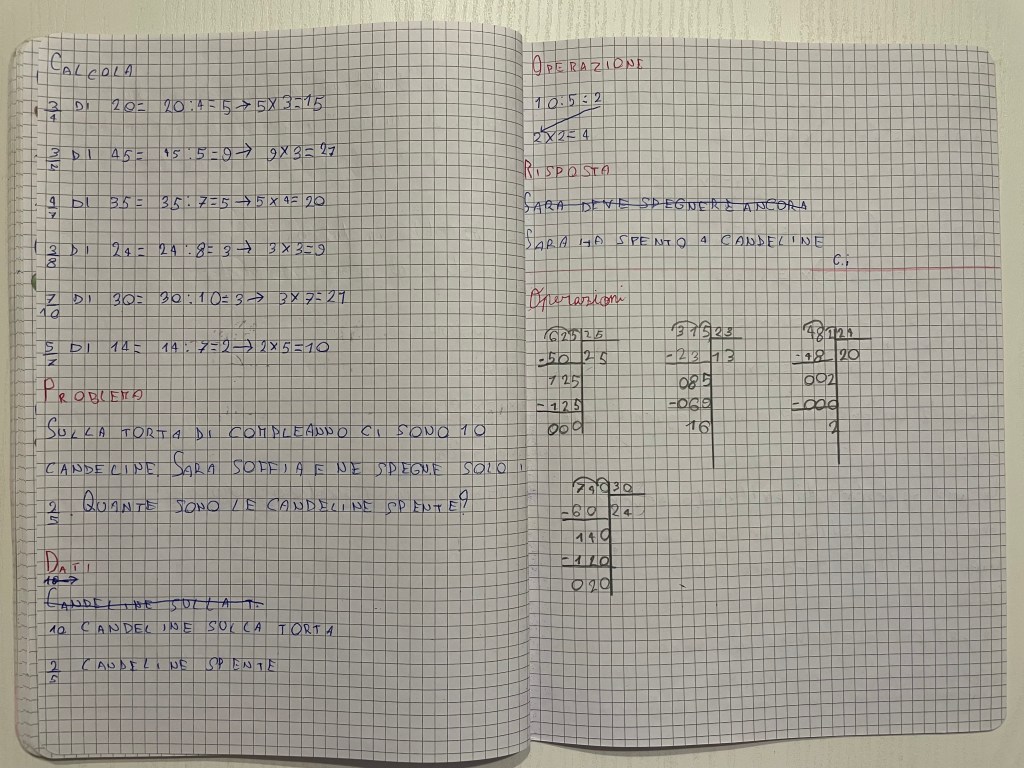 CALCOLA
3/4 DI 20= 20:4=5→5×3=15
3/5 DI 45= 45:5=9→ 9×3=27
4/7 DI 35= 35:7=5→5×4=20
3/8 DI 24= 24:8=3→ 3×3=9
7/10 DI 30= 30:10=3→ 3×7=21
5/7 DI 14= 14:7=2→2×5=10
PROBLEMA
SULLA TORTA DI COMPLEANNO CI SONO 10
CANDELINE. SARA SOFFIA E NE SPEGNE SOLO I
2/5. QUANTE SONO LE CANDELINE SPENTE?
DATI
10→
CANDELINE SULLA T.
10 CANDELINE SULLA TORTA
2/5 CANDELINE SPENTE
OPERAZIONE
10:5=2
2×2=4
RISPOSTA
SARA DEVE SPEGNERE ANCORA
SARA HA SPENTO 4 CANDELINE
C.i
Operazioni
625 25
-50 25
125
-125
000
315 23
-23 13
085
-069
16
482 24
-48 20
002
-000
2
740 30
-60 24
140
-120
020